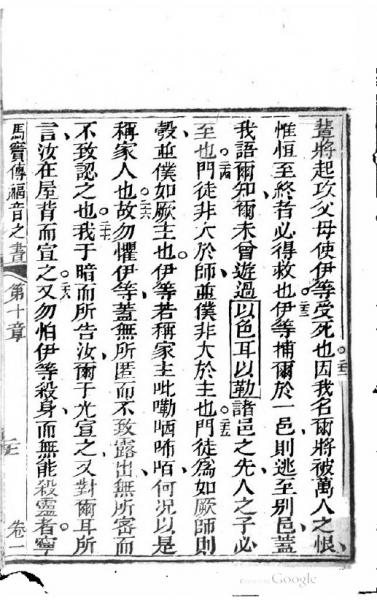 輩將起攻父母使伊等受死也。二二因我名爾將被萬人之恨、
惟恒至終者必得救也。二三伊等捕爾於一邑則逃至别邑蓋
我語爾知爾未曾遊過以色耳以勒諸邑之先人之子必
至也。二四門徒非大於師並僕非大於主也。二五門徒為如厥師則
彀並僕如厥主也。伊等若稱家主呲嘞哂咈咟何况以是
稱家人也。二六故勿懼伊等蓋無所匿而不致露出無所密而
不致認之也。二七我于暗而所告汝爾于光宣之又對爾耳所
言汝在屋背而宣之。二八又勿怕伊等殺身而無能殺靈者寧
馬竇傳福音之書 第十章 卷一
Google